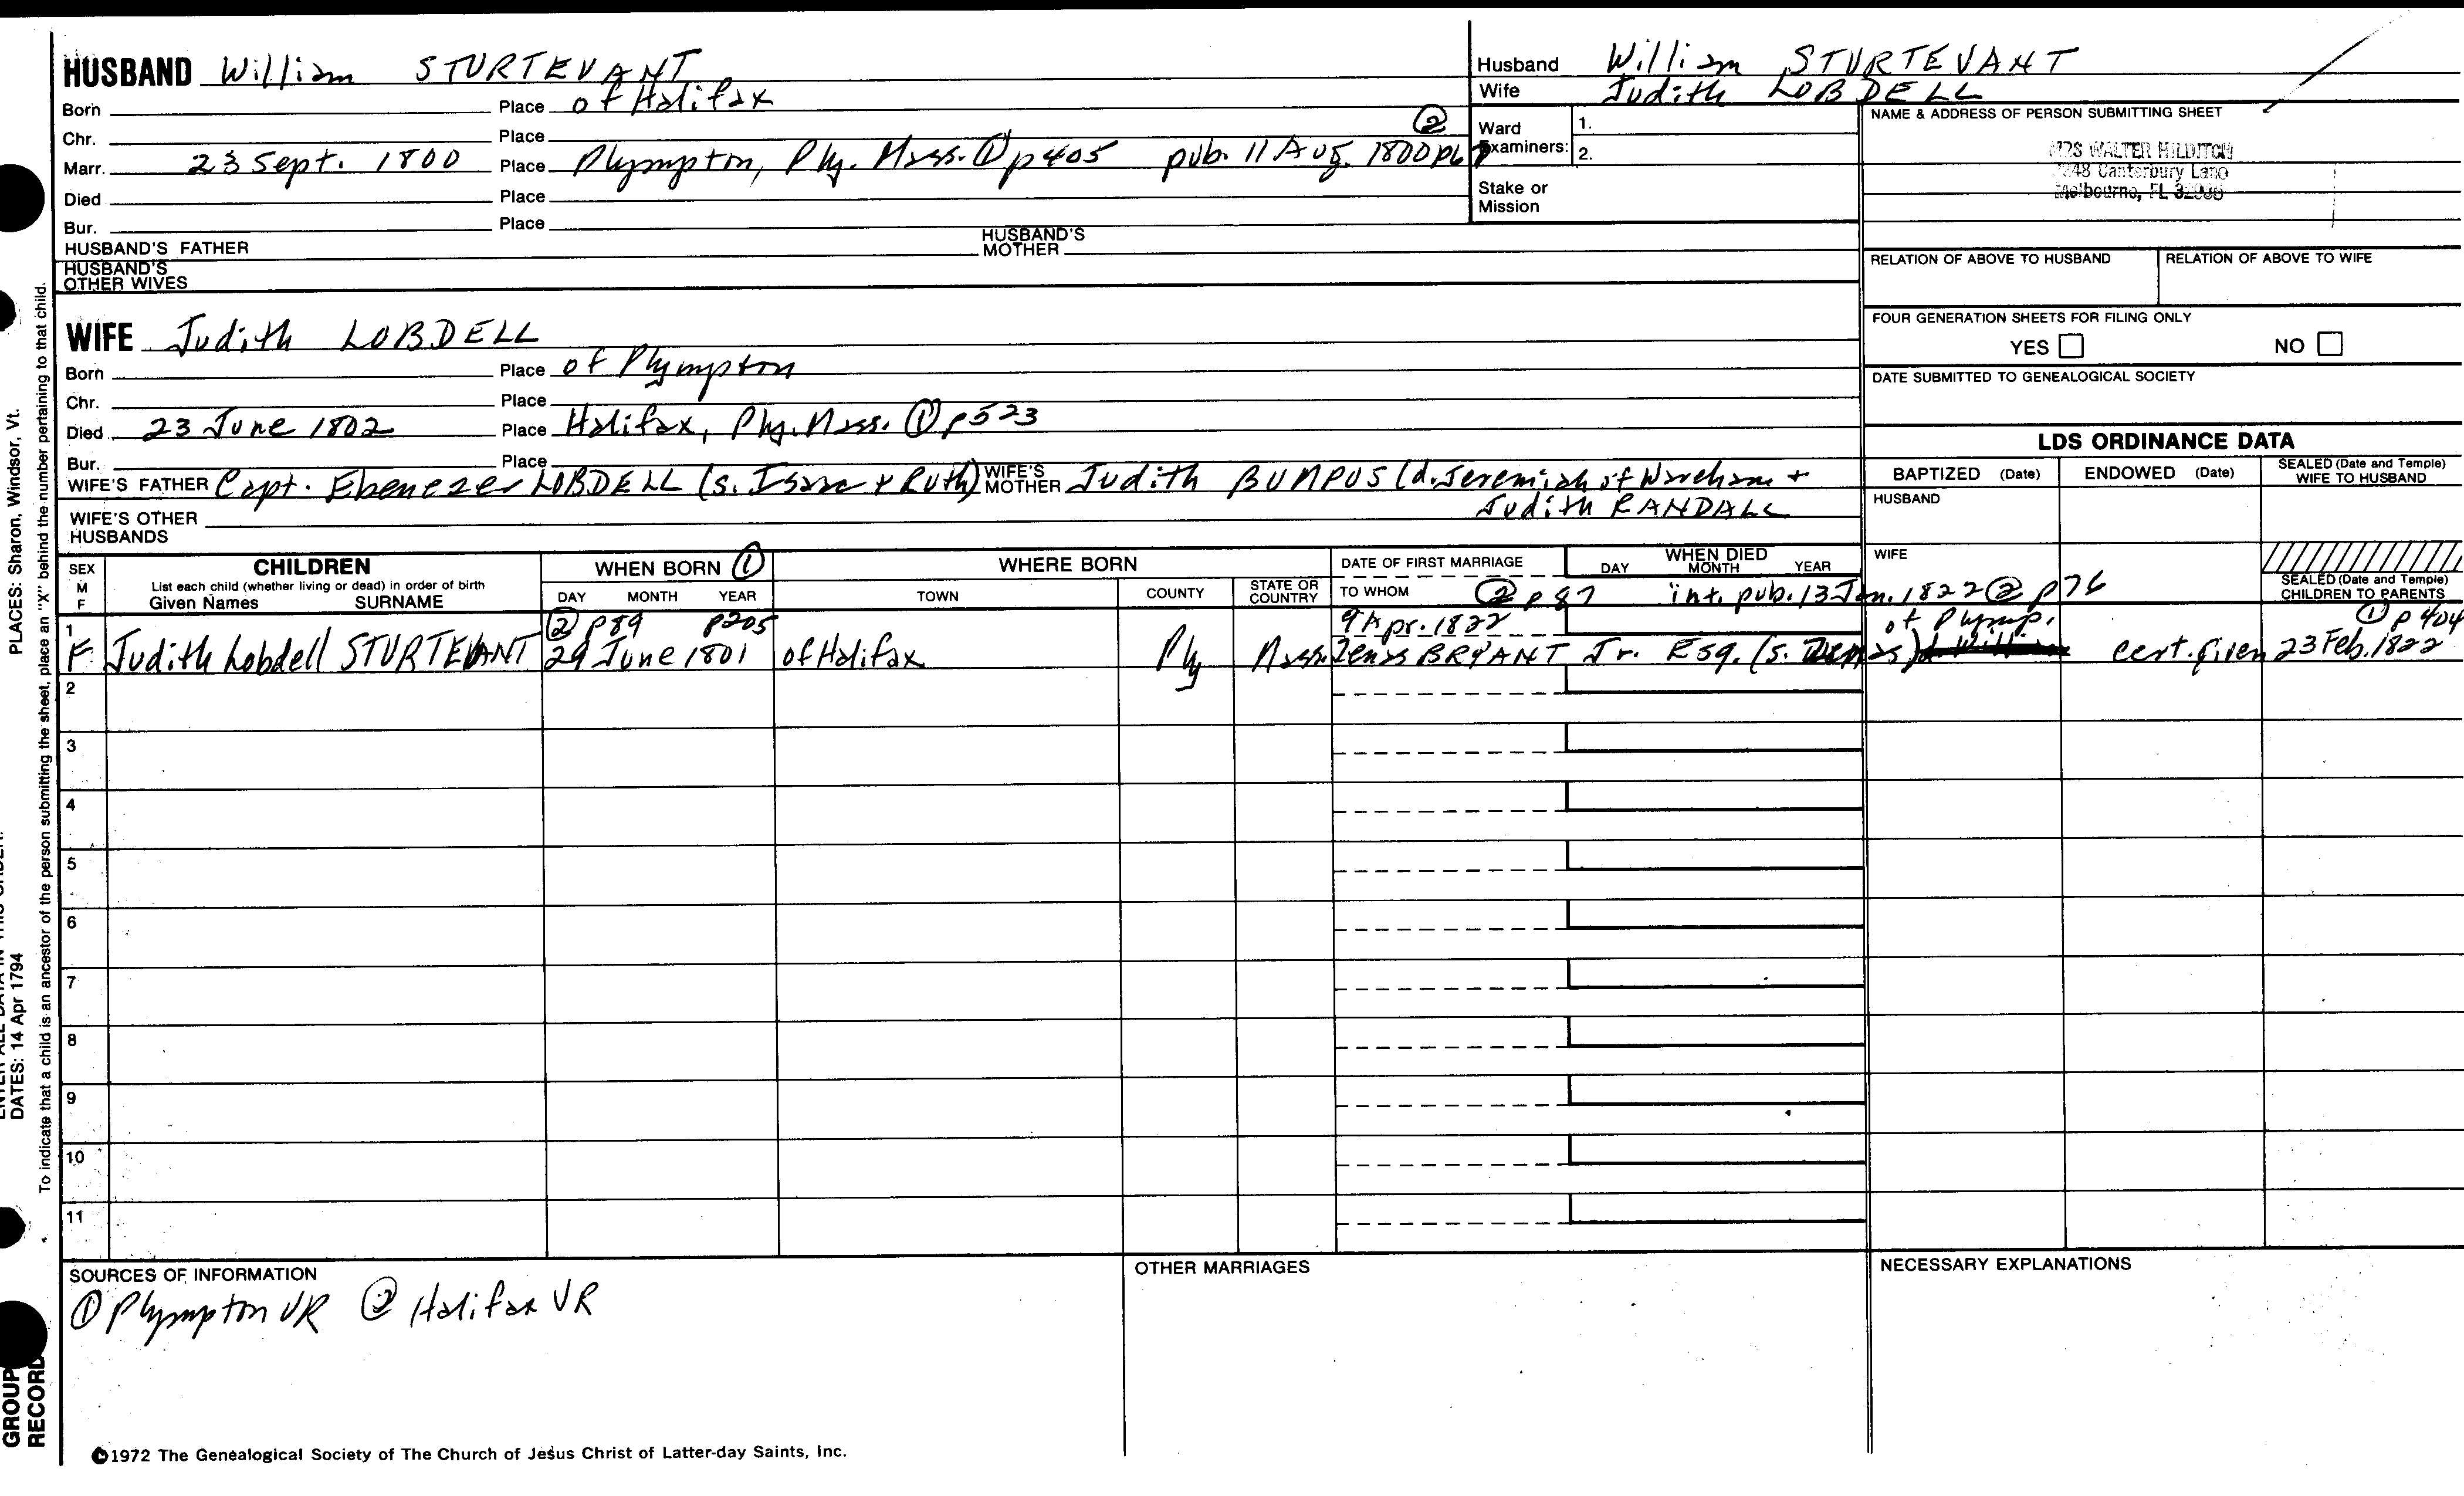 HUSBAND William STURTEVANT
Born Place of Halifax
Chr. Place
Marr. 23 Sept. 1800 Place Plympton, Ply. Mass. ① p405 pub. 11 Aug. 1800 ②
Died Place
Bur. Place
HUSBAND'S FATHER HUSBAND'S MOTHER
HUSBAND'S OTHER WIVES
Husband William STURTEVANT
Wife Judith LOBDELL
Ward Examiners: 1.
2.
Stake or Mission
NAME & ADDRESS OF PERSON SUBMITTING SHEET
MRS WALTER HILDITCH
Canterbury Lane
Melbourne, FL
RELATION OF ABOVE TO HUSBAND RELATION OF ABOVE TO WIFE
FOUR GENERATION SHEETS FOR FILING ONLY
YES NO
DATE SUBMITTED TO GENEALOGICAL SOCIETY
WIFE Judith LOBDELL
Born Place of Plympton
Chr. Place
Died 23 June 1802 Place Halifax, Ply. Mass. ① p523
Bur. Place
WIFE'S FATHER Capt. Ebenezer LOBDELL (s. Isaac + Ruth) WIFE'S MOTHER Judith BUMPUS (d. Jeremiah of Wareham +
Judith RANDALL
WIFE'S OTHER HUSBANDS
LDS ORDINANCE DATA
BAPTIZED (Date) ENDOWED (Date) SEALED (Date and Temple) WIFE TO HUSBAND
HUSBAND
WIFE
SEALED (Date and Temple) CHILDREN TO PARENTS
SEX M F
CHILDREN
List each child (whether living or dead) in order of birth
Given Names SURNAME
WHEN BORN ①
DAY MONTH YEAR
WHERE BORN
TOWN COUNTY STATE OR COUNTRY
DATE OF FIRST MARRIAGE
TO WHOM
WHEN DIED
DAY MONTH YEAR
② p 87 int. pub. 13 Jan. 1822 ② p76
② p89 p205 9 Apr. 1822 of Plymp. ① p 404
1 F Judith Lobdell STURTEVANT 29 June 1801 of Halifax Ply Mass. Zenas BRYANT Jr. Esq. (s. Zenas) cert. given 23 Feb. 1822
2
3
4
5
6
7
8
9
10
11
SOURCES OF INFORMATION
① Plympton VR ② Halifax VR
OTHER MARRIAGES
NECESSARY EXPLANATIONS
©1972 The Genealogical Society of The Church of Jesus Christ of Latter-day Saints, Inc.
To indicate that a child is an ancestor of the person submitting the sheet, place an "X" behind the number pertaining to that child.
PLACES: Sharon, Windsor, Vt.
DATES: 14 Apr 1794
GROUP
RECORD